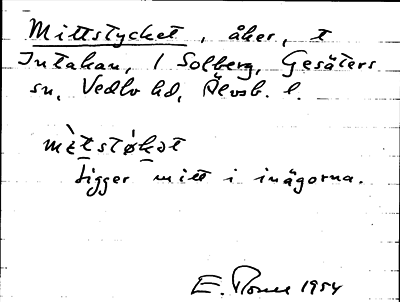 Mittstycket, åker, t
Intakan, 1 Solberg, Gesäters
sn, Vedbo hd, Älvsb. l.
mètstøkət
Ligger mitt i inägorna.
E. 1954